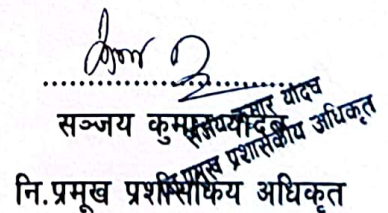 सञ्जय कुमार यादव
नि.प्रमुख प्रशासिकिय अधिकृत
सञ्जय कुमार यादव
नि.प्रमुख प्रशासकीय अधिकृत